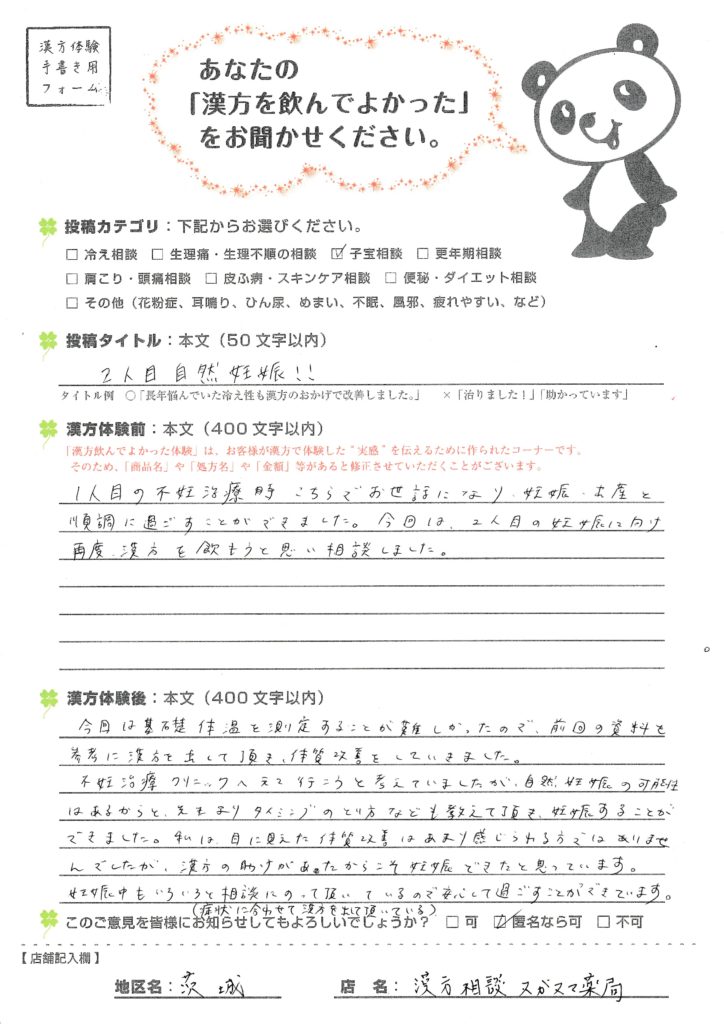 漢方体験
手書き用
フォーム
あなたの
「漢方を飲んでよかった」
をお聞かせください。
投稿カテゴリ：下記からお選びください。
□ 冷え相談 □ 生理痛・生理不順の相談 ☑ 子宝相談 □ 更年期相談
□ 肩こり・頭痛相談 □ 皮ふ病・スキンケア相談 □ 便秘・ダイエット相談
□ その他（花粉症、耳鳴り、ひん尿、めまい、不眠、風邪、疲れやすい、など）
投稿タイトル：本文（50文字以内）
2人目自然妊娠!!
タイトル例 ○「長年悩んでいた冷え性も漢方のおかげで改善しました。」 ×「治りました！」「助かっています」
漢方体験前：本文（400文字以内）
「漢方飲んでよかった体験」は、お客様が漢方で体験した“実感”を伝えるために作られたコーナーです。
そのため、「商品名」や「処方名」や「金額」等があると修正させていただくことがございます。
1人目の不妊治療時こちらでお世話になり、妊娠・出産と
順調に過ごすことができました。今回は、2人目の妊娠に向け
再度、漢方を飲もうと思い相談しました。
漢方体験後：本文（400文字以内）
今回は基礎体温を測定することが難しかったので、前回の資料を
参考に漢方を出して頂き、体質改善をしていきました。
不妊治療クリニックへ行こうと考えていましたが、自然妊娠の可能性
はあるからと、先生よりタイミングのとり方なども教えて頂き、妊娠することが
できました。私は、目に見えた体質改善はあまり感じられる方ではありませ
んでしたが、漢方の助けがあったからこそ妊娠できたと思っています。
妊娠中もいろいろと相談にのって頂いているので安心して過ごすことができています。
（症状に合わせて漢方を出して頂いている）
このご意見を皆様にお知らせしてもよろしいでしょうか？ □ 可 ☑ 匿名なら可 □ 不可
【店舗記入欄】
地区名：茨城 店 名：漢方相談 スガヌマ薬局